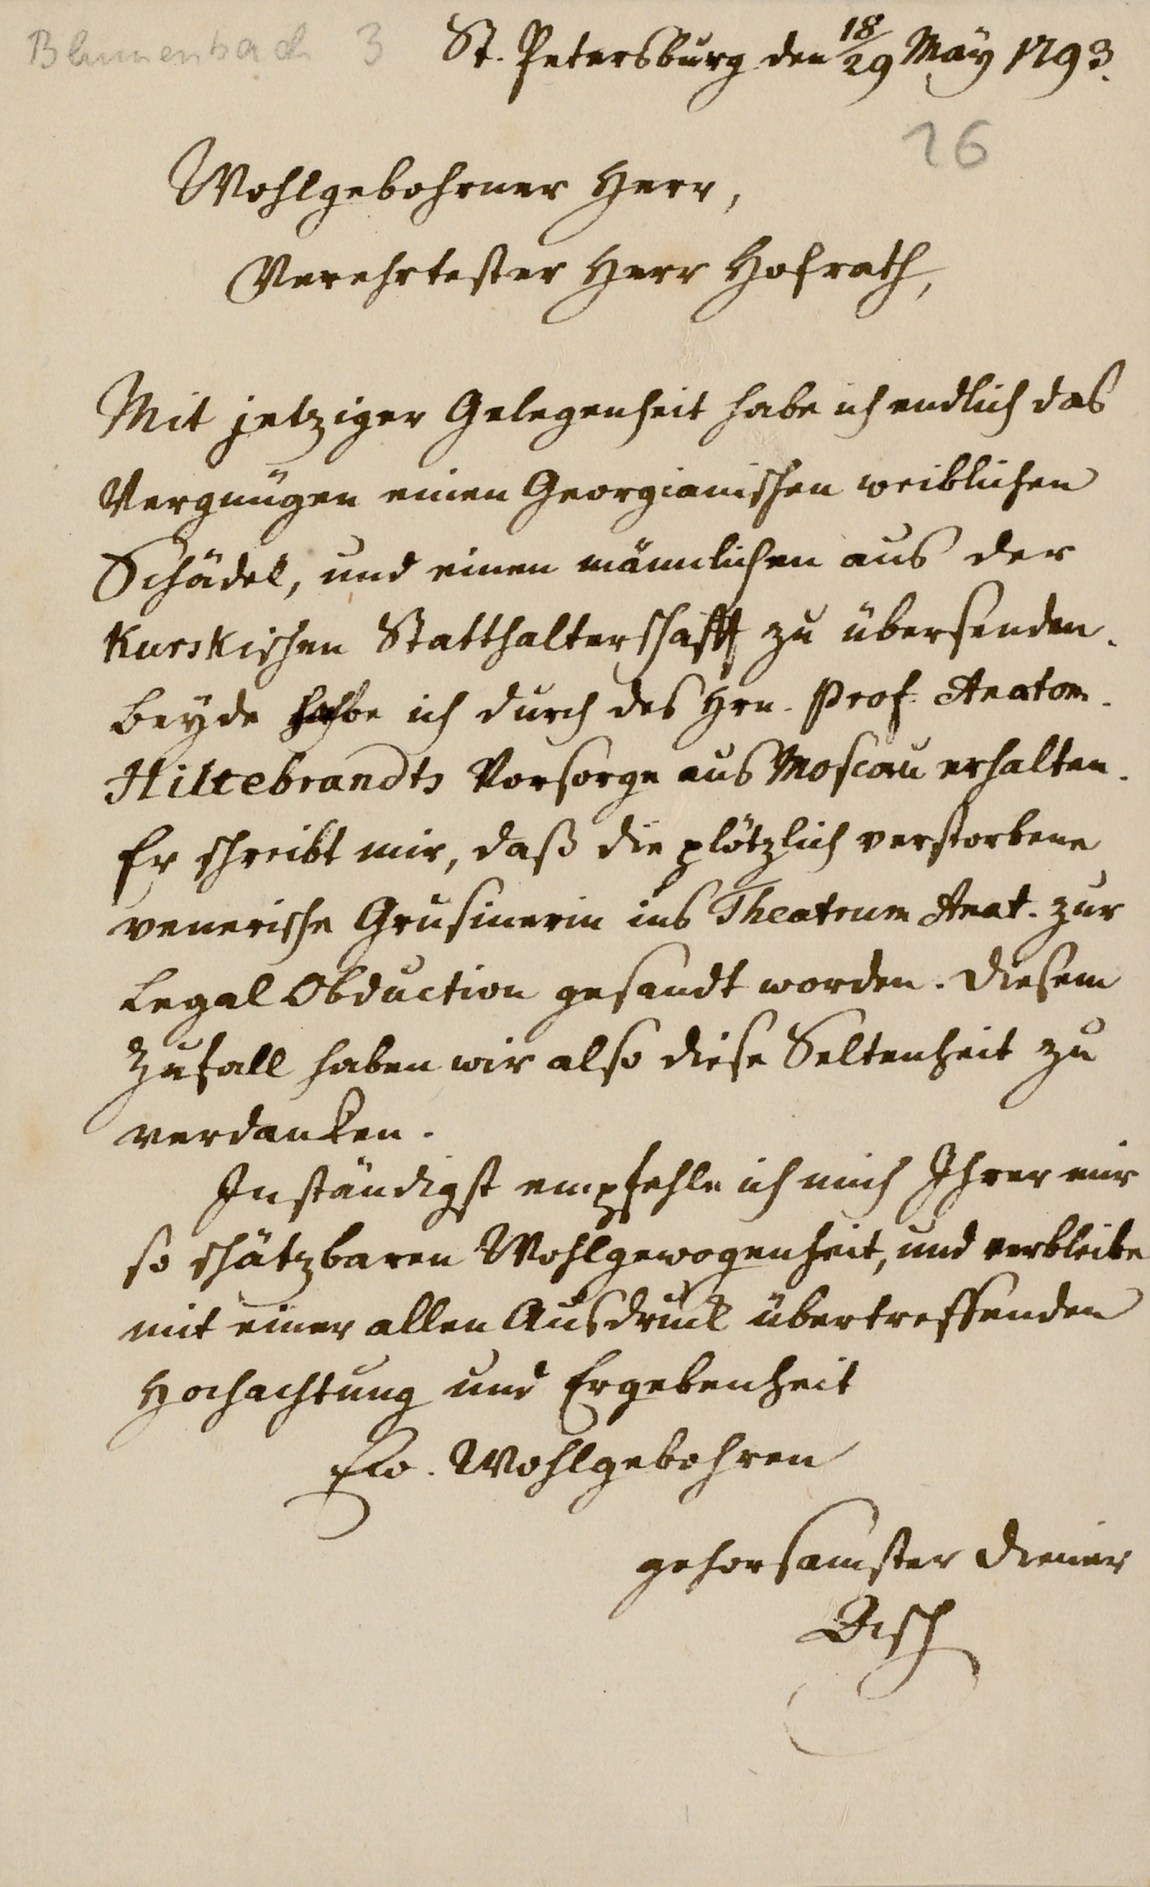 Blumenbach 3
St. Petersburg den 18/29 May 1793.
26
Wohlgebohrner Herr,
Verehrtester Herr Hofrath,
Mit jetziger Gelegenheit habe ich endlich das
Vergnügen einen Georgianischen weiblichen
Schädel, und einen männlichen aus der
Kurskischen Statthalterschafft zu übersenden.
Beyde habe ich durch des Hrn. Prof. Anatom.
Hiltebrandts Vorsorge aus Moscau erhalten.
Er schreibt mir, daß die plötzlich verstorbene
venerische Grusinerin ins Theatrum Anat. zur
Legal Obduction gesandt worden. Diesem
Zufall haben wir also diese Seltenheit zu
verdanken.
Inständigst empfehle ich mich Ihrer mir
so schätzbaren Wohlgewogenheit, und verbleibe
mit einer allen Ausdruck übertreffenden
Hochachtung und Ergebenheit
Ew. Wohlgebohren
gehorsamster Diener
Asch